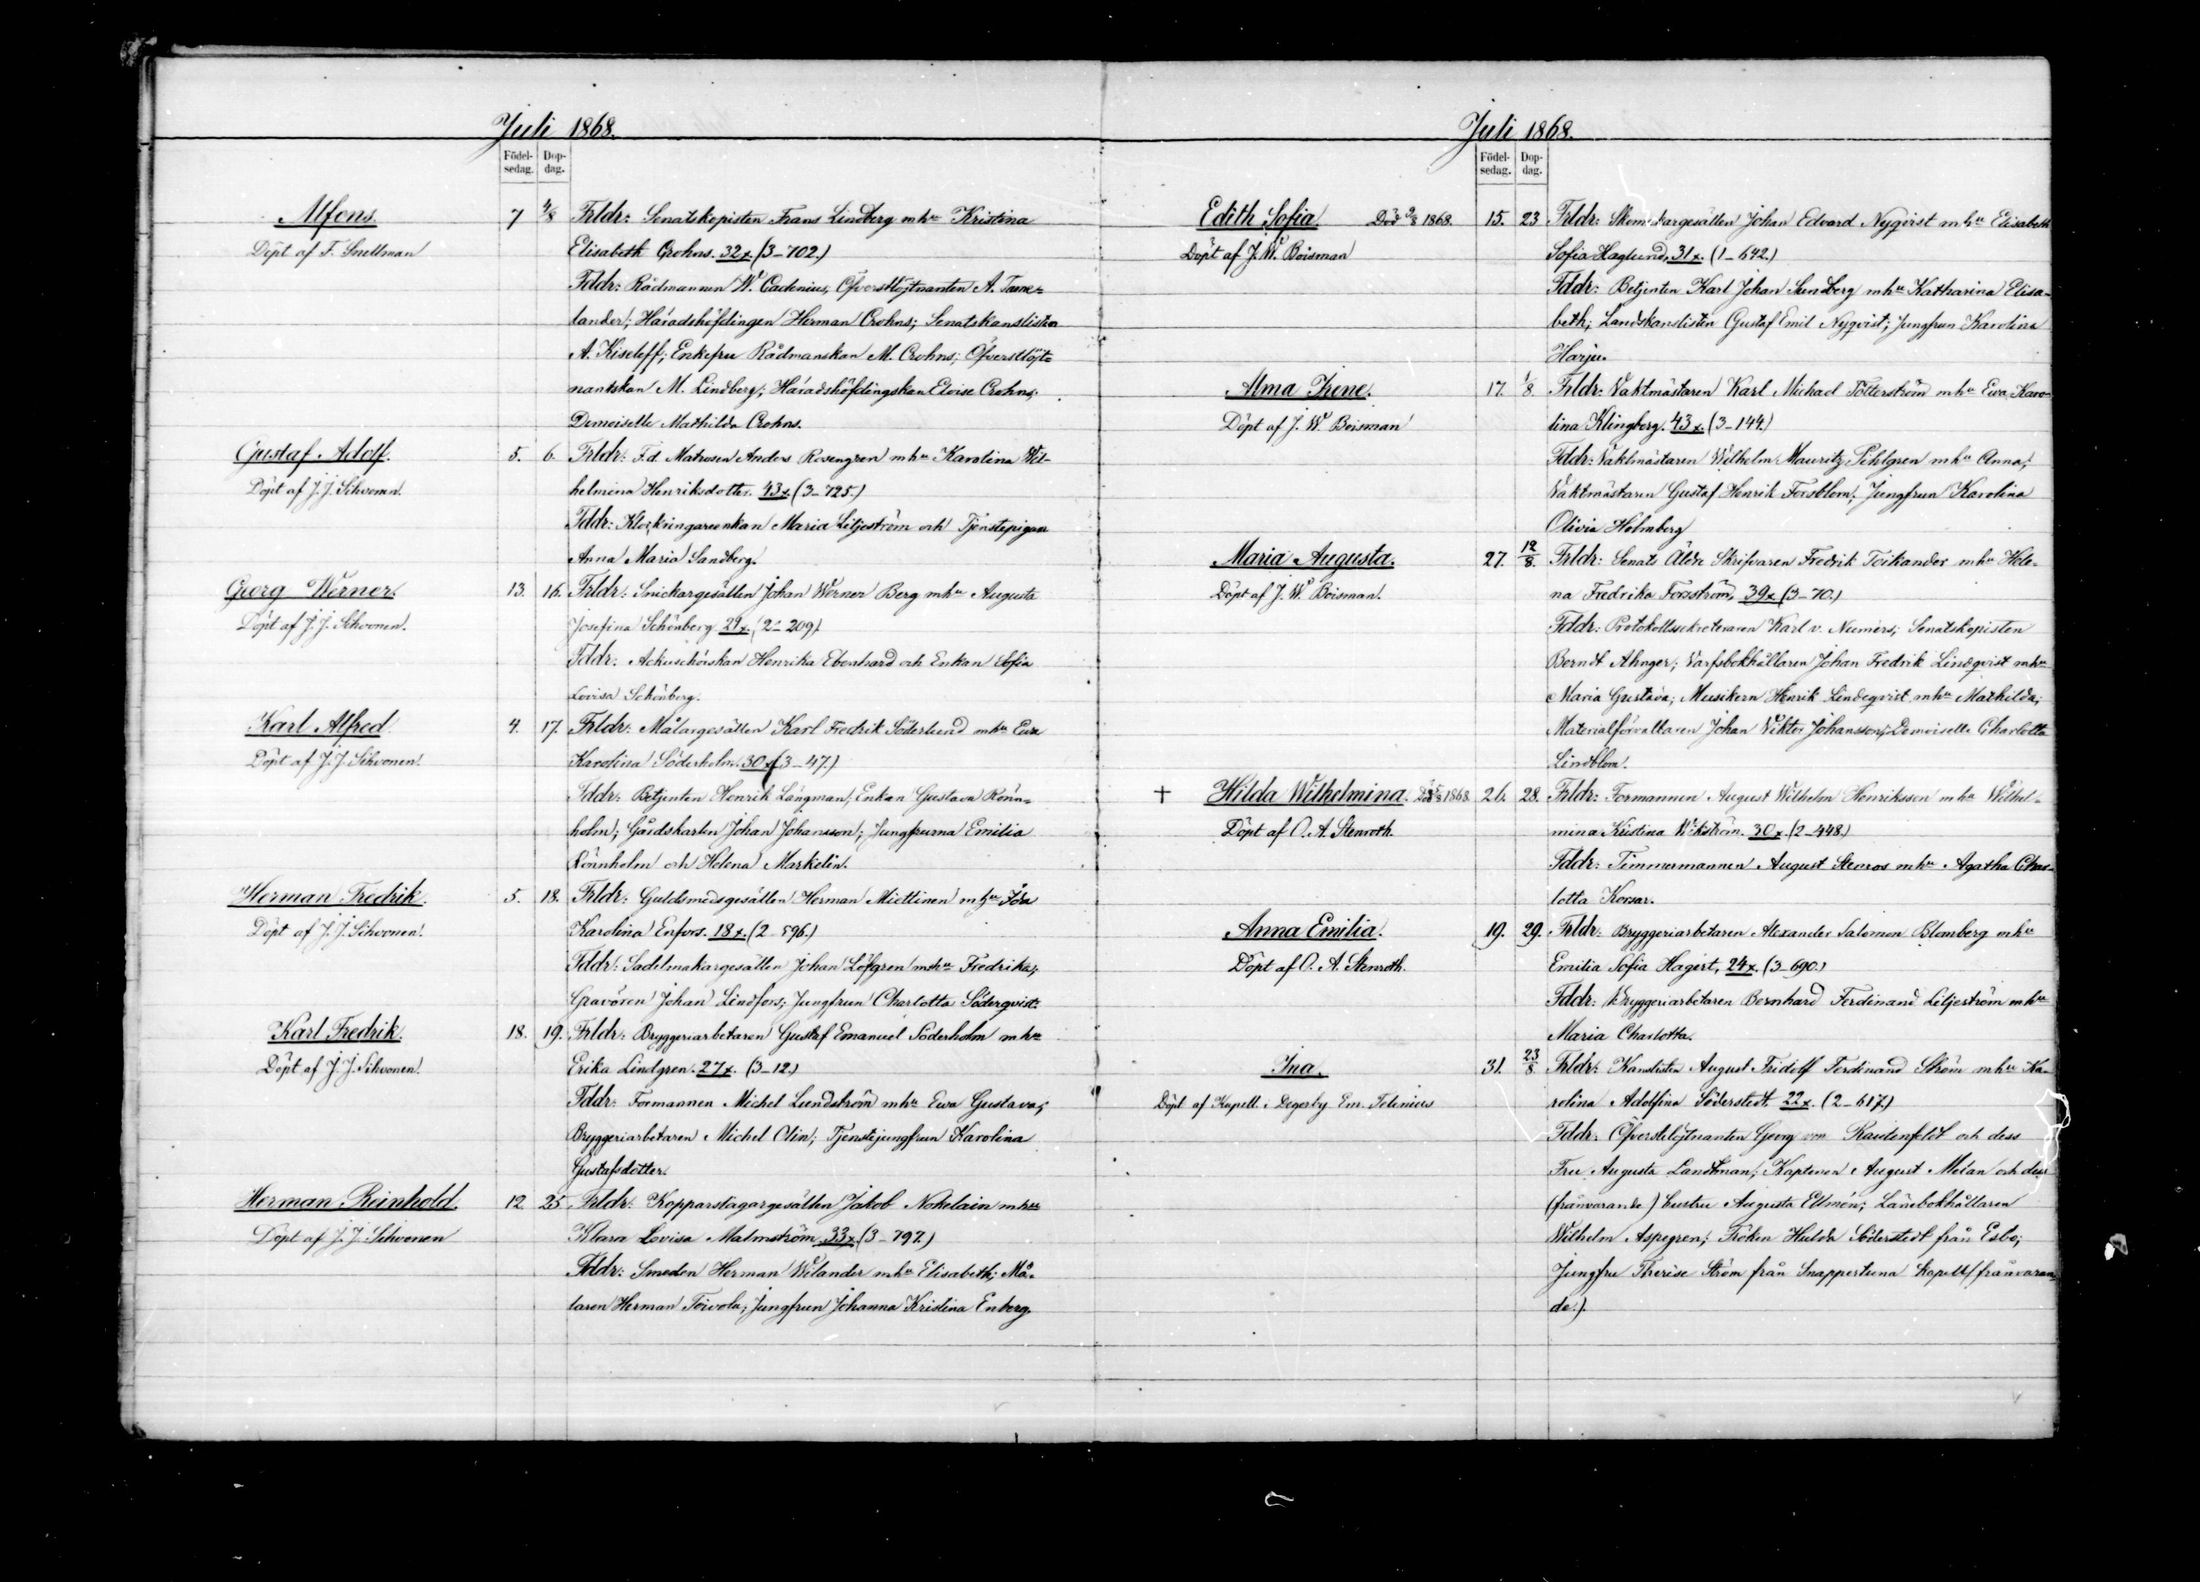 Juli 1868.
Födel-
sedag.
Dop-
dag.
Alfons 7 4/8 Frldr: Senatskopisten Frans Lindberg mhu Kristina
Döpt af F. Snellman Elisabeth Crohns. 32 x. (3-702.)
Fddr: Rådmannen W. Cadenius; Öfverstlöjtnanten A. Tawe-
lander; Häradshöfdingen Herman Crohns; Senatskanslisten
A. Kiseleff; Enkefru Rådmanskan M. Crohns; Öfverstlöjt-
nantskan M. Lindberg; Häradshöfdingskan Eloise Crohns;
Demoiselle Mathilda Crohns.
Gustaf Adolf. 5. 6. Frldr: F.d. Matrosen Anders Rosengren mhu Karolina Wil-
Döpt af J. J. Sihvonen. helmina Henriksdotter. 43 x. (3-725.)
Fddr: Klockringareenkan Maria Liljeström och Tjenstepigan
Anna Maria Sandberg.
Georg Werner. 13. 16. Frldr: Snickargesällen Johan Werner Berg mhu Augusta
Döpt af J. J. Sihvonen. Josefina Schönberg. 29 x. (2-209)
Fddr: Ackuschörskan Henrika Eberhard och Enkan Sofia
Lovisa Schönberg.
Karl Alfred 4. 17. Frldr: Målargesällen Karl Fredrik Söderlund mhu Ewa
Döpt af J. J. Sihvonen. Karolina Söderholm. 30 x (3-47.)
Fddr: Betjenten Henrik Långman; Enkan Gustava Rönn-
holm; Gårdskarlen Johan Johansson; Jungfrurna Emilia
Rönnholm och Helena Markelin.
Herman Fredrik. 5. 18. Frldr: Guldsmedsgesällen Herman Miettinen mhu Ida
Döpt af J. J. Sihvonen. Karolina Enfors. 18 x. (2-596.)
Fddr: Sadelmakargesällen Johan Löfgren mhu Fredrika;
Gravören Johan Lindfors; Jungfrun Charlotta Söderqvist.
Karl Fredrik. 18. 19. Frldr: Bryggeriarbetaren Gustaf Emanuel Söderholm mhu
Döpt af J. J. Sihvonen. Erika Lindgren. 27 x. (3-12.)
Fddr: Formannen Michel Lundström mhu Ewa Gustava;
Bryggeriarbetaren Michel Olin; Tjenstejungfrun Karolina
Gustafsdotter.
Herman Reinhold. 12. 25. Frldr: Kopparslagargesällen Jakob Nokelain mhu
Döpt af J. J. Sihvonen Klara Lovisa Malmström. 33 x. (3-797.)
Fddr: Smeden Herman Wilander mhu Elisabeth; Må-
laren Herman Toivola; Jungfrun Johanna Kristina Enberg.
Juli 1868.
Födel-
sedag.
Dop-
dag.
Edith Sofia. Död 9/8 1868. 15. 23 Frldr: Skomakargesällen Johan Edvard Nyqvist mhu Elisabeth
Döpt af J. W. Boisman Sofia Haglund. 31 x. (1-642.)
Fddr: Betjenten Karl Johan Sundberg mhu Katharina Elisa-
beth; Landskanslisten Gustaf Emil Nyqvist; Jungfrun Karolina
Harju.
Alma Irene. 17. 1/8. Frldr: Vaktmästaren Karl Michael Tölterström mhu Ewa Karo-
Döpt af J. W. Boisman lina Klingberg. 43 x. (3-144.)
Fddr: Vaktmästaren Wilhelm Mauritz Pihlgren mhu Anna;
Vaktmästaren Gustaf Henrik Forsblom; Jungfrun Karolina
Olivia Holmberg
Maria Augusta. 27. 12/8. Frldr: Senats Äldre Skrifvaren Fredrik Toikander mhu Hele-
Döpt af J. W. Boisman. na Fredrika Forsström. 39 x. (3-70.)
Fddr: Protokollssekreteraren Karl v. Numers; Senatskopisten
Berndt Ahnger; Varfsbokhållaren Johan Fredrik Lindqvist mhu
Maria Gustava; Musikern Henrik Lindeqvist mhu Mathilda;
Materialförvaltaren Johan Viktor Johansson; Demoiselle Charlotta
Lindblom.
+ Hilda Wilhelmina. Död 1868 26. 28. Frldr: Formannen August Wilhelm Henriksson mhu Wilhel-
Döpt af O. A. Stenroth. mina Kristina Wikström. 30 x. (2-448.)
Fddr: Timmermannen August Stenros mhu Agatha Char-
lotta Korsar.
Anna Emilia. 19. 29. Frldr: Bryggeriarbetaren Alexander Salomon Blomberg mhu
Döpt af O. A. Stenroth. Emilia Sofia Hagert. 24 x. (3-690.)
Fddr: Bryggeriarbetaren Bernhard Ferdinand Liljeström mhu
Maria Charlotta.
Ina. 31. 23/8. Frldr: Kanslisten August Fridolf Ferdinand Ström mhu Ka-
Döpt af Kapell. i Degerby Em. Telenius rolina Adolfina Söderstedt. 22 x. (2-617.)
Fddr: Öfverstelöjtnanten Georg von Rautenfeldt och dess
Fru Augusta Landtman; Kaptenen August Melan och dess
(frånvarande) hustru Augusta Ellmén; Länebokhållaren
Wilhelm Aspegren; Fröken Hulda Söderstedt från Esbo;
Jungfru Therese Ström från Snappertuna kapell (frånvaran-
de.).